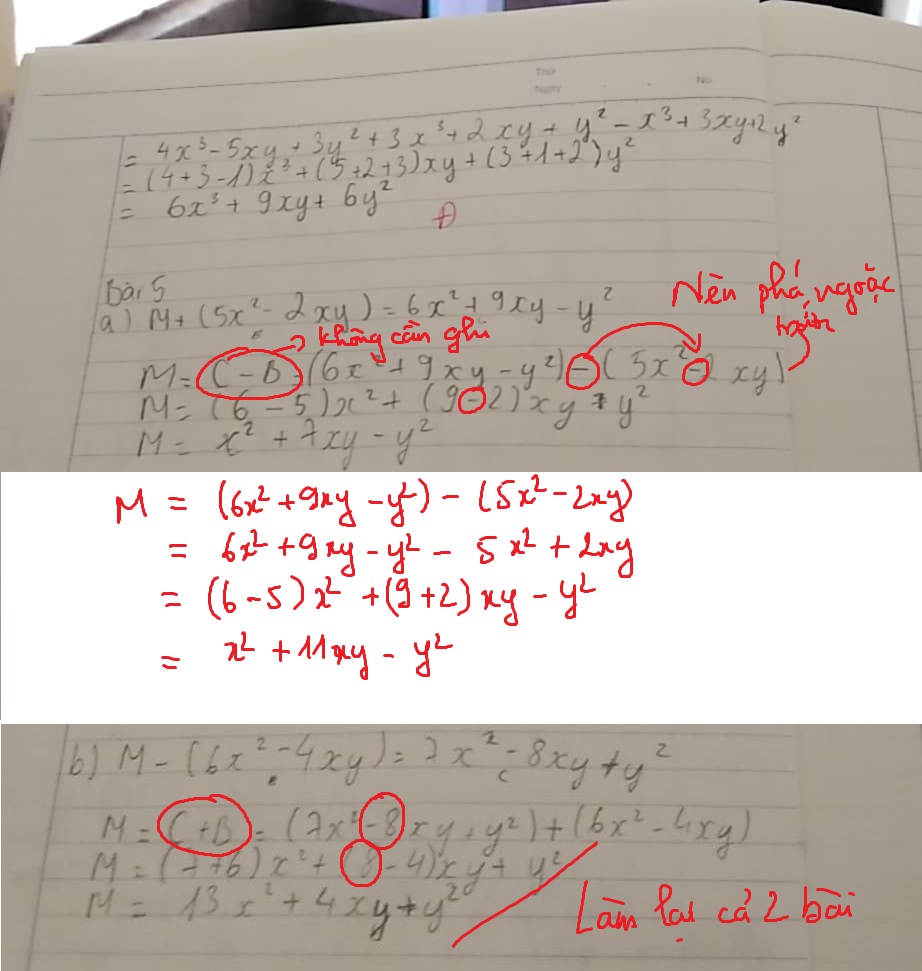 Thứ
Ngày No
= 4x³ - 5xy + 3y² + 3x³ + 2xy + y² - x³ + 3xy + 2y²
= (4+3-1)x³ + (5+2+3)xy + (3+1+2)y²
= 6x³ + 9xy + 6y²
Đ
Bài 5
a) M + (5x² - 2xy) = 6x² + 9xy - y²
Nên phá ngoặc trước
không cần ghi
M = C - B = (6x² + 9xy - y²) - (5x² - 2xy)
M = (6-5)x² + (9-2)xy - y²
M = x² + 7xy - y²
M = (6x² + 9xy - y²) - (5x² - 2xy)
= 6x² + 9xy - y² - 5x² + 2xy
= (6-5)x² + (9+2)xy - y²
= x² + 11xy - y²
b) M - (6x² - 4xy) = 7x² - 8xy + y²
M = C + B = (7x² - 8xy + y²) + (6x² - 4xy)
M = (7+6)x² + (8-4)xy + y²
M = 13x² + 4xy + y²
Làm lại cả 2 bài